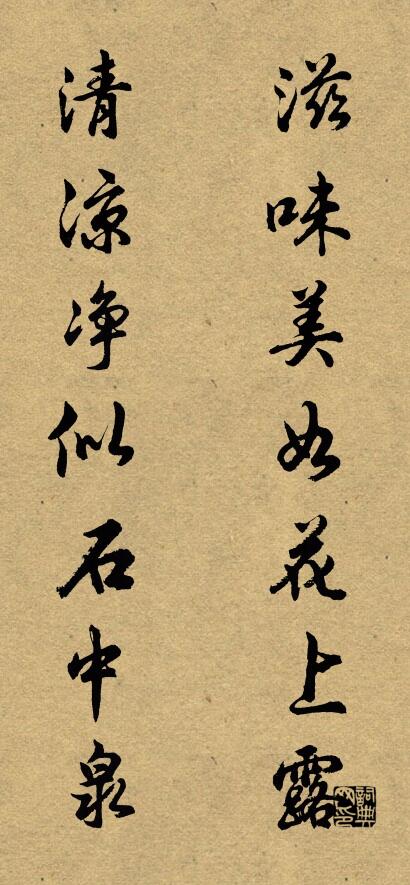 滋味美如花上露
清凉净似石中泉